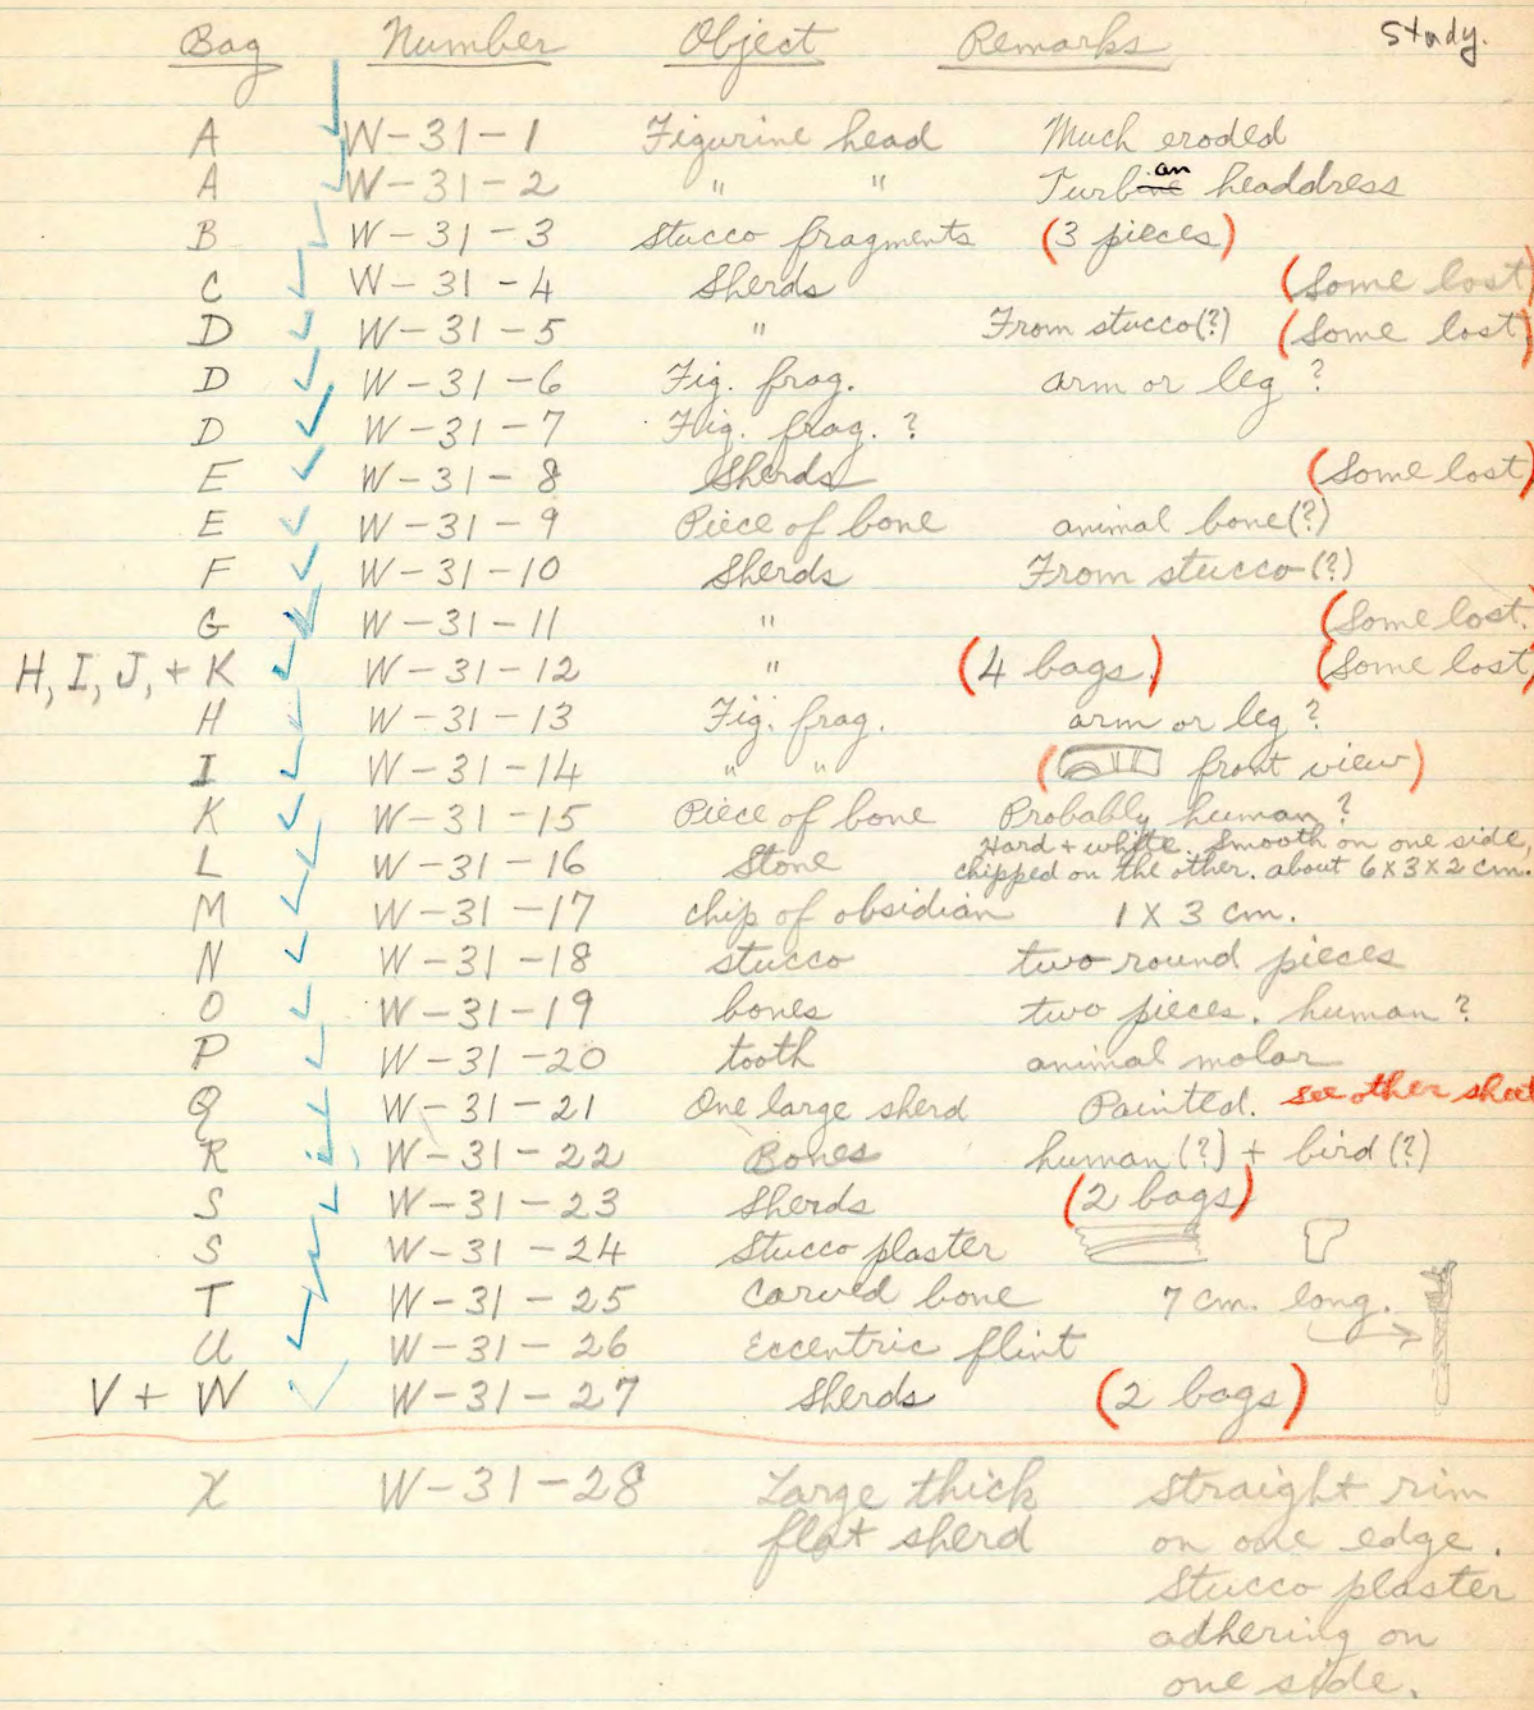 Bag Number Object Remarks Study.
A W-31-1 Figurine head Much eroded
A W-31-2 " " Turban headdress
B W-31-3 Stucco fragments (3 pieces)
C W-31-4 Sherds (Some lost)
D W-31-5 " From stucco(?) (Some lost)
D W-31-6 Fig. frag. arm or leg ?
D W-31-7 Fig. frag. ?
E W-31-8 Sherds (Some lost)
E W-31-9 Piece of bone animal bone(?)
F W-31-10 Sherds From stucco(?)
G W-31-11 " (Some lost.
H, I, J, + K W-31-12 " (4 bags.) (Some lost)
H W-31-13 Fig. frag. arm or leg ?
I W-31-14 " " ( front view)
K W-31-15 Piece of bone Probably human ?
L W-31-16 Stone Hard + white. Smooth on one side,
chipped on the other. about 6 X 3 X 2 cm.
M W-31-17 chip of obsidian 1 X 3 cm.
N W-31-18 stucco two round pieces
O W-31-19 bones two pieces. human ?
P W-31-20 tooth animal molar
Q W-31-21 One large sherd Painted. see other sheet
R W-31-22 Bones human(?) + bird(?)
S W-31-23 Sherds (2 bags)
S W-31-24 Stucco plaster
T W-31-25 Carved bone 7 cm. long.
U W-31-26 Eccentric flint
V + W W-31-27 Sherds (2 bags)
X W-31-28 Large thick straight rim
flat sherd on one edge.
Stucco plaster
adhering on
one side.